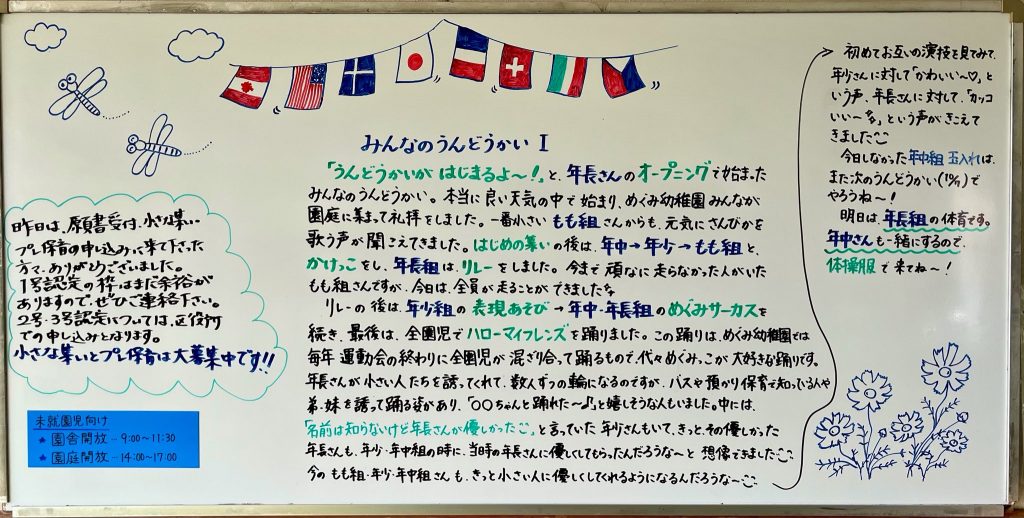 みんなのうんどうかい I
「うんどうかいが はじまるよ〜!」と、年長さんのオープニングで始まった
みんなのうんどうかい。本当に良い天気の中で始まり、めぐみ幼稚園みんなが
園庭に集まって礼拝をしました。一番小さい もも組さんからも、元気にさんびかを
歌う声が聞こえてきました。はじめの集いの後は、年中→年少→もも組と、
かけっこをし、年長組は、リレーをしました。今まで頑なに走らなかった人がいた
もも組さんですが、今日は、全員が走ることができました
リレーの後は、年少組の表現あそび→年中・年長組のめぐみサーカスを
続き、最後は、全園児でハローマイフレンズを踊りました。この踊りは、めぐみ幼稚園では
毎年 運動会の終わりに全園児が混ざり合って踊るもので、代々めぐみっこが大好きな踊りです。
年長さんが小さい人たちを誘ってくれて、数人ずつの輪になるのですが、バスや預かり保育で知っている人や
弟・妹を誘って踊る姿があり、「〇〇ちゃんと踊れた〜♪」と嬉しそうな人もいました。中には、
「名前は知らないけど年長さんが優しかった」と言っていた年少さんもいて、きっと、その優しかった
年長さんも、年少・年中組の時に、当時の年長さんに優しくしてもらったんだろうな〜と 想像できました
今の もも組・年少・年中組さんも、きっと小さい人に優しくしてくれるようになるんだろうな〜
初めてお互いの演技を見てみて、
年少さんに対して「かわいい〜♡」と
いう声、年長さんに対して、「カッコ
いい〜」という声がきこえて
きました
今日しなかった年中組 玉入れは、
また次のうんどうかい(10/11)で
やろうね〜!
明日は、年長組の体育です。
年中さんも一緒にするので、
体操服で来てね〜!
昨日は、願書受付、小さな集い、
プレ保育の申し込みに来て下さった
方々、ありがとございました。
1号認定の枠はまだ余裕が
ありますので、ぜひご連絡下さい。
2号・3号認定については、区役所
での申し込みとなります。
小さな集いとプレ保育は大募集中です!!
未就園児向け
★ 園舎開放…9:00〜11:30
★ 園庭開放…14:00〜17:00